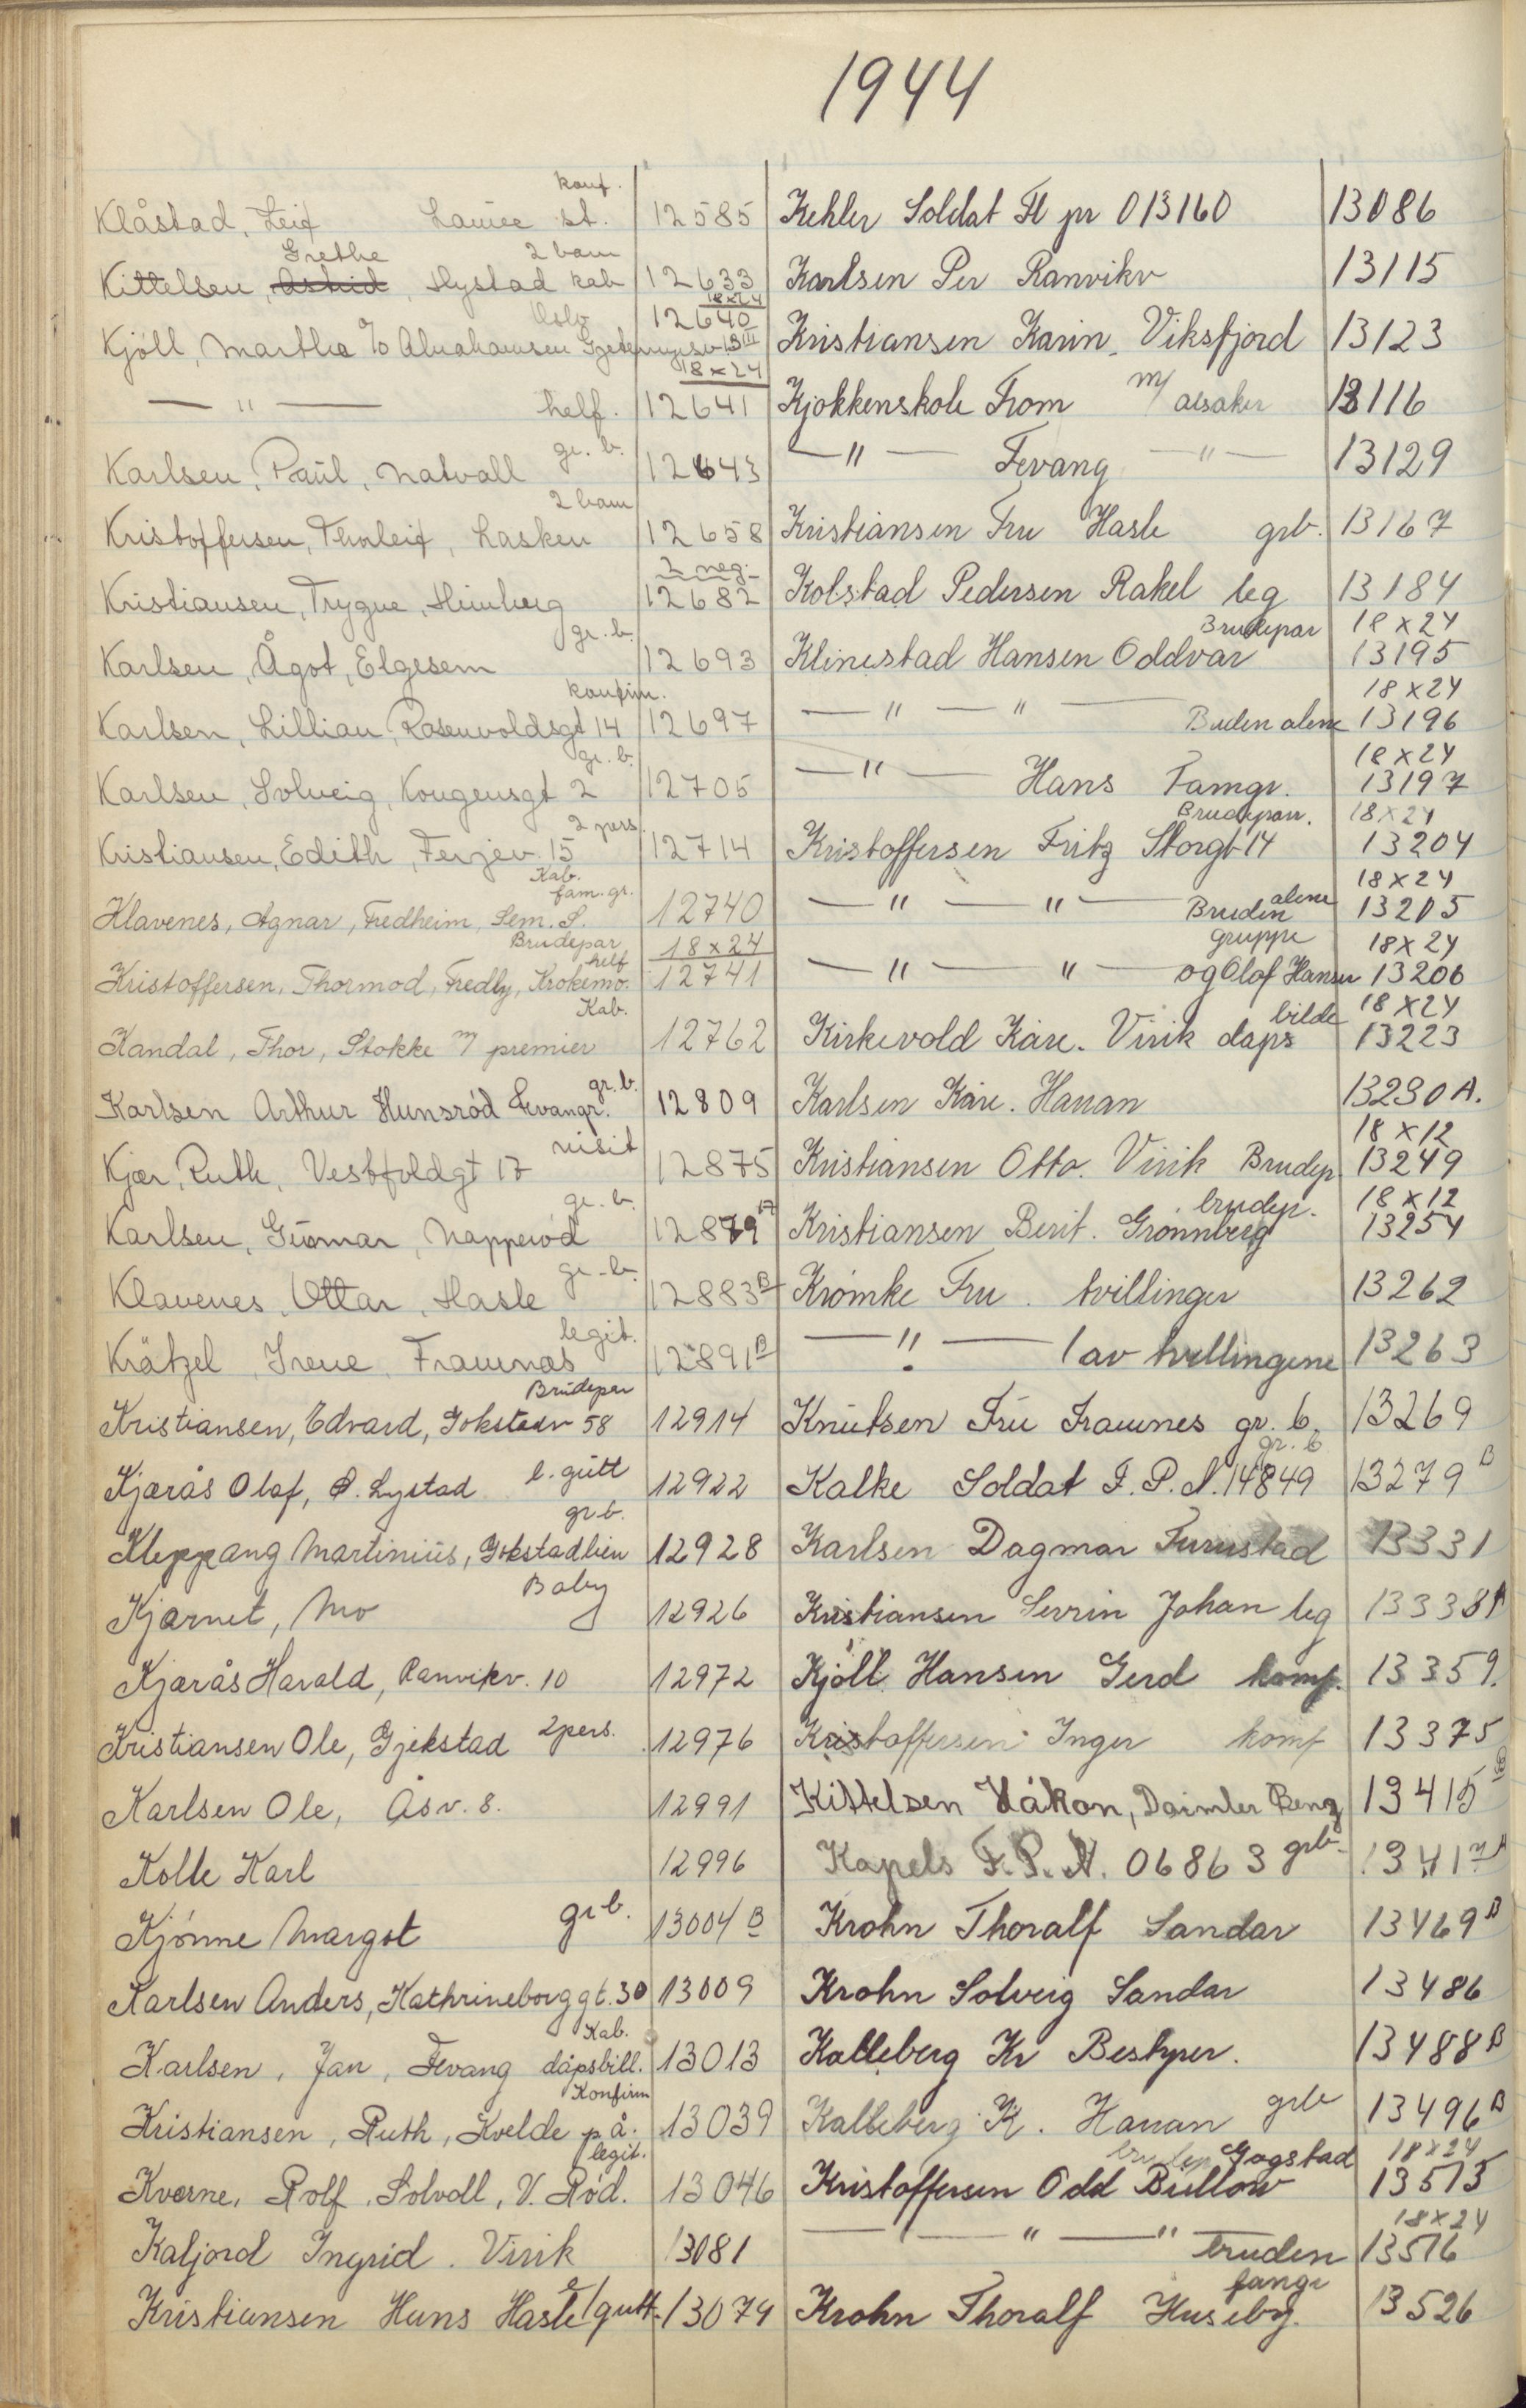 1944
konf.
Klåstad, Leif Lauve st. 12585
Grethe 2 barn
Kittelsen, Astrid, Nystad kab 12633
Oslo 18x24
12640
Kjöll, Martha c/o Abrahamsen 13 III
18x24
— " — helf. 12641
gr. b.
Karlsen, Paul, Natvall 12643
2 barn
Kristoffersen, Thorleif, Lasken 12658
2 neg.
Kristiansen, Trygve, Heimberg 12682
gr. b.
Karlsen, Ågot, Elgesem 12693
konfirm.
Karlsen, Lillian, Rosenvoldsgt 14 12697
gr. b.
Karlsen, Solveig, Kongensgt 2 12705
2 pers.
Kristiansen, Edith, Ferjev. 15 12714
Kab.
fam. gr.
Klavenes, Agnar, Fredheim, Sem. S. 12740
Brudepar 18x24
helf
Kristoffersen, Thormod, Fredly, Krokemo. 12741
Kab.
Kandal, Thor, Stokke m/ premier 12762
gr. b.
Karlsen Arthur Hunsrød Fevangr. 12809
visit
Kjær, Ruth, Vestfoldgt 17 12875
gr. b.
Karlsen, Gunnar, Napperød 12879
gr. b.
Klavenes, Ottar, Hasle 12883 B
legit.
Krätzel, Irene Framnæs 12891 B
Brudepar
Kristiansen, Edvard, Gokstadv 58 12914
Kjærås Olaf, Ø. Lystad l. gutt 12922
gr b.
Kleppang Martinius, Gokstadlien 12928
Baby
Kjærnet, Mo 12926
Kjærås Harald, Ranvikv. 10 12972
Kristiansen Ole, Gjekstad 2 pers. 12976
Karlsen Ole, Åsv. 8. 12991
Kolle Karl 12996
Kjønne Margot gr b. 13004 B
Karlsen Anders, Kathrineborggt. 30 13009
Kab.
Karlsen, Jan, Fevang dåpsbill. 13013
Konfirm
Kristiansen, Ruth, Kvelde p. å. 13039
legit.
Kverne, Rolf, Solvoll, V. Rød. 13046
Kaljord Ingrid. Virik 13081
Kristiansen Hans Hasle l gutt 13074
Kehler Soldat Fl pr 013160 13086
Karlsen Per Ranvikv 13115
Kristiansen Karin. Viksfjord 13123
Kjøkkenskole From m/ Alsaker 13116
— " — Fevang — " — 13129
Kristiansen Fru Hasle grb. 13167
Kolstad Pedersen Rakel leg 13184
Brudepar 18x24
Klinestad Hansen Oddvar 13195
18x24
— " — " — Bruden alene 13196
18x24
— " — Hans Famgr. 13197
Brudepar. 18x24
Kristoffersen Fritz Storgt 14 13204
18x24
— " — " — Bruden alene 13205
gruppe 18x24
— " — " — og Olaf Hansen 13206
bilde 18x24
Kirkevold Kåre. Virik daps 13223
Karlsen Kåre. Hauan 13230 A.
18x12
Kristiansen Otto. Virik Brudep 13249
brudep. 18x12
Kristiansen Berit. Grønnberg 13254
Krömke Fru. tvillinger 13262
— " — 1 av tvillingene 13263
Knutsen Fru Framnes gr. b. 13269
gr. b
Kalke Soldat F. P. N. 14849 13279 B
Karlsen Dagmar Furustad 13331
Kristiansen Serrin Johan leg 13338 A
Kjöll Hansen Gerd komf. 13359.
Kristoffersen Inger komf 13375
Kittelsen Håkon, Daimler Benz 13415 B
Kapels F. P. N. 06863 grb 13417 A
Krohn Thoralf Sandar 13469 B
Krohn Solveig Sandar 13486
Kalleberg Kr Beshyer. 13488 B
Kalleberg K. Hauan grb 13496 B
brudep Gogstad 18x24
Kristoffersen Odd Büllow 13515
18x24
— " — " — bruden 13516
fange
Krohn Thoralf Huseby. 13526